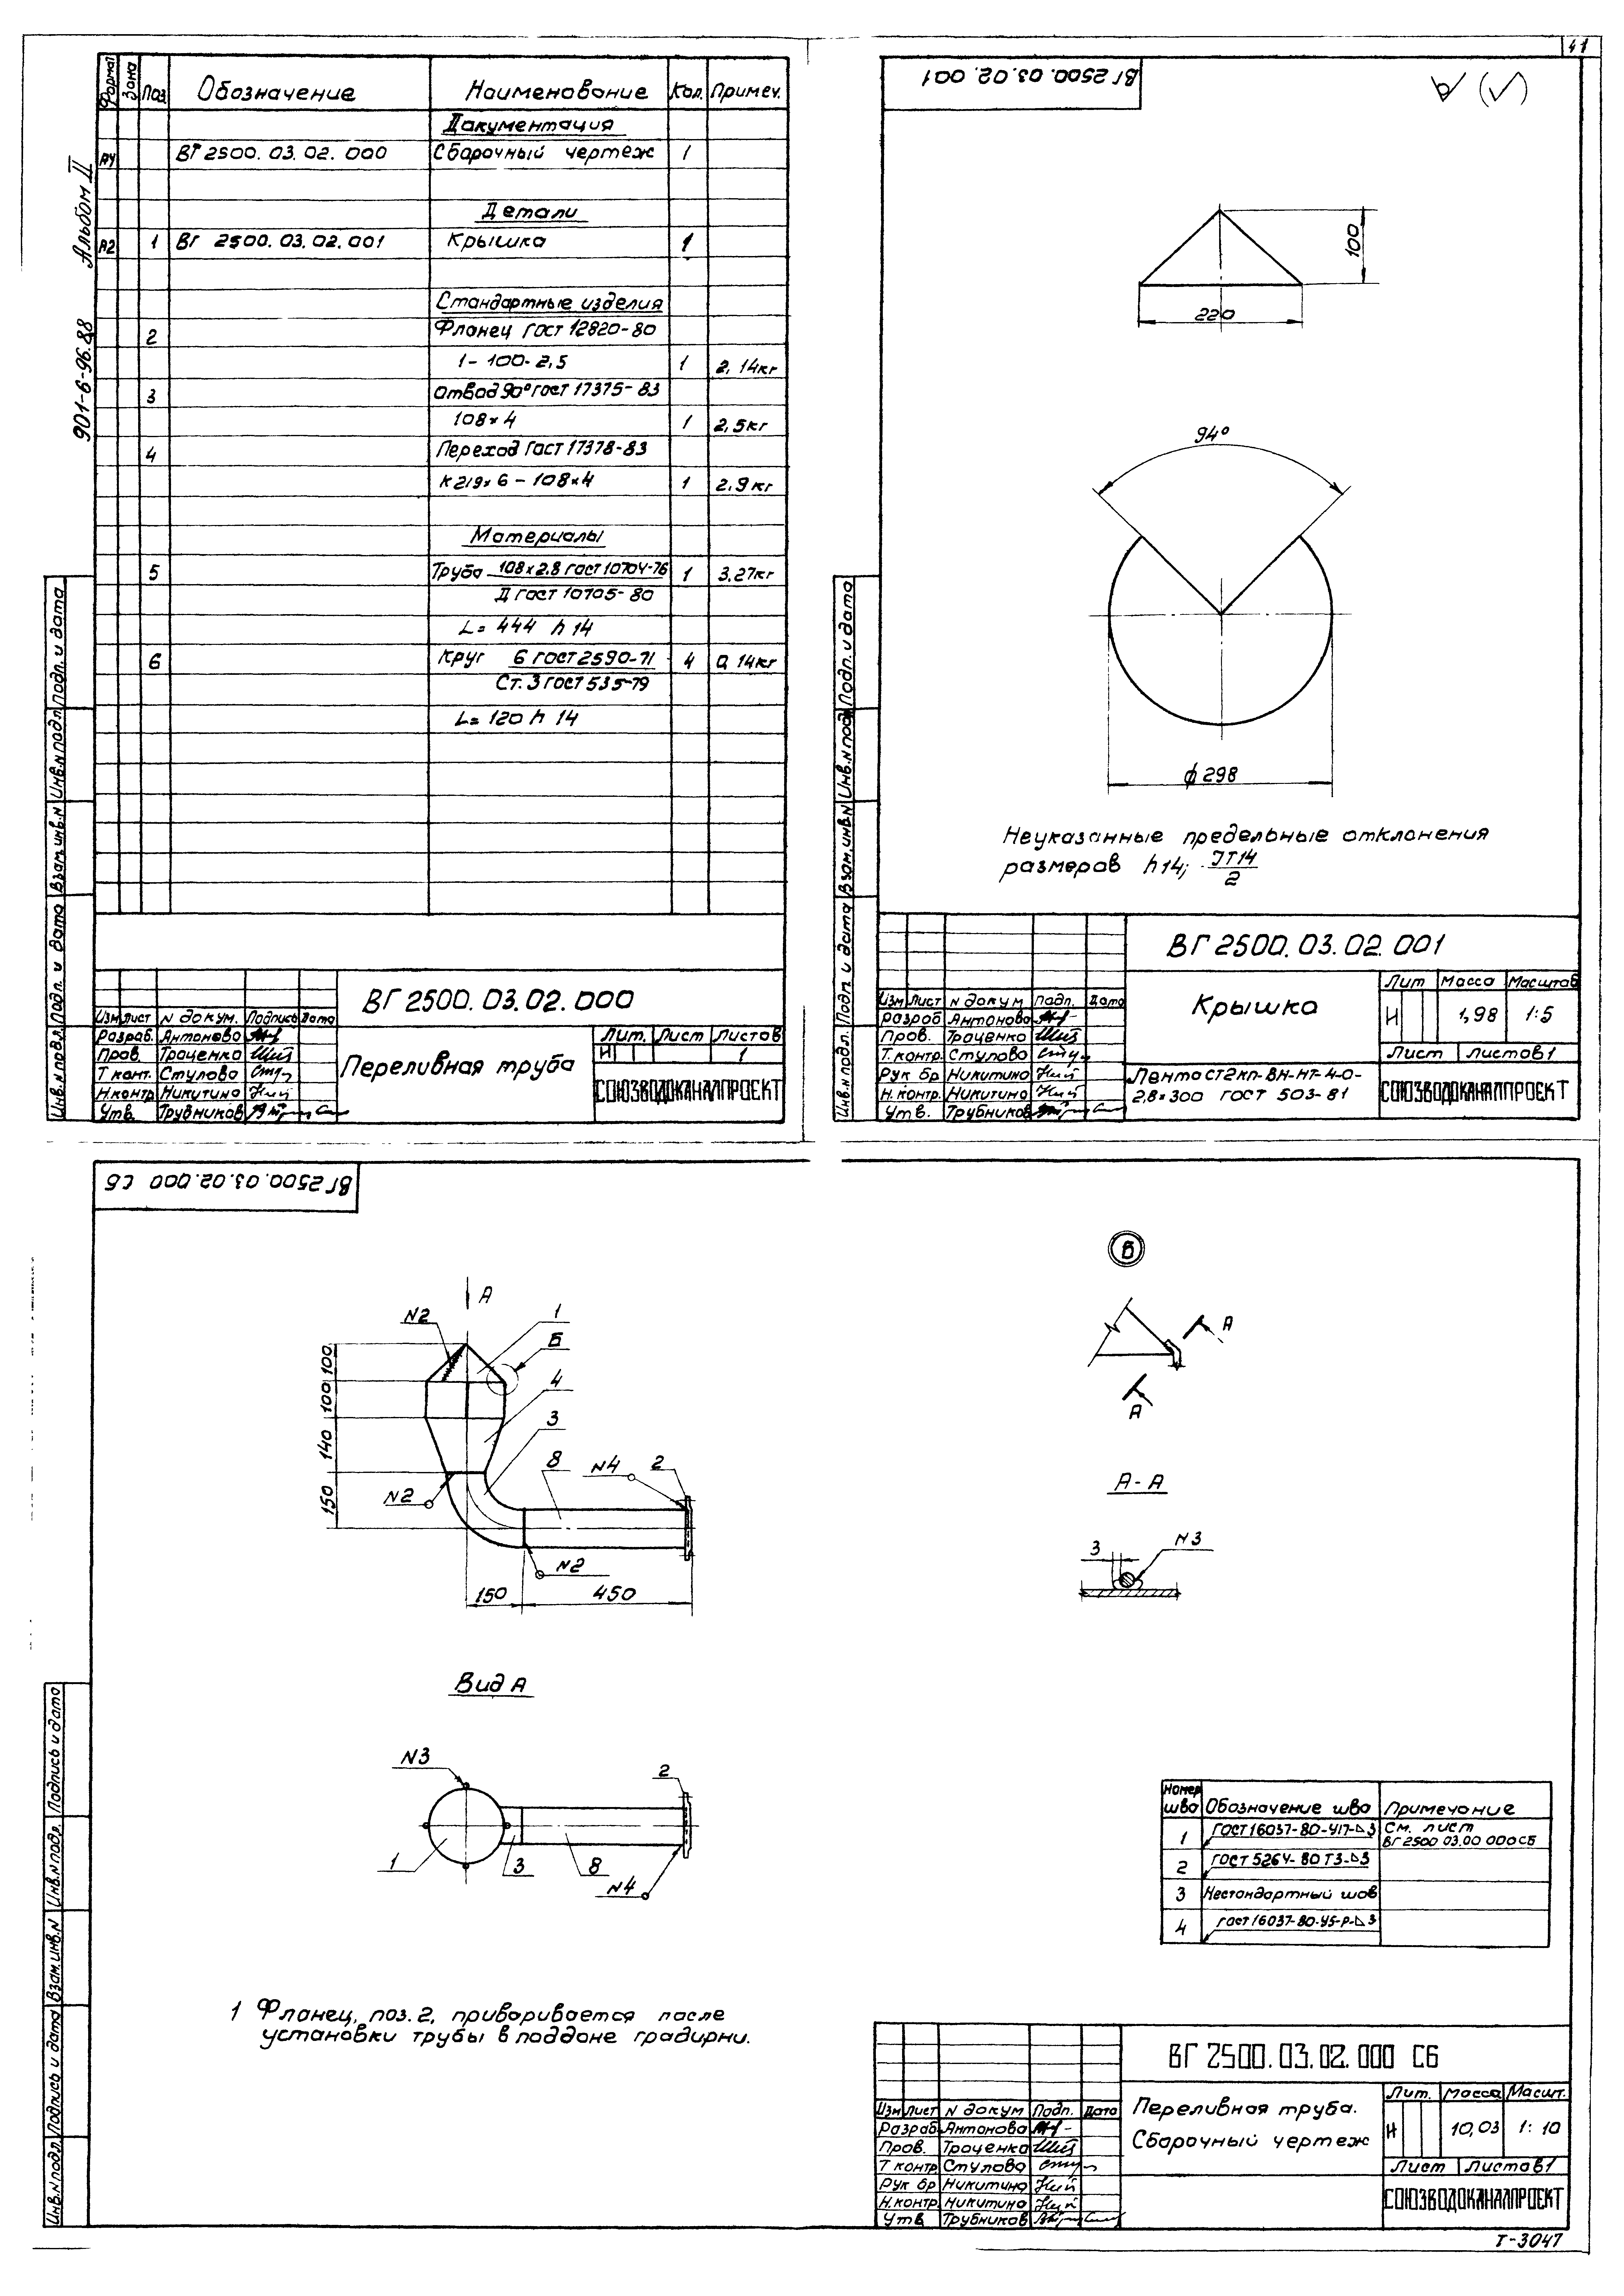 41
901-6-96.88 Альбом II
Формат Зона Поз. Обозначение Наименование Кол. Примеч.
Документация
А4 ВГ 2500.03.02.000 Сборочный чертеж 1
Детали
А2 1 ВГ 2500.03.02.001 Крышка 1
Стандартные изделия
2 Фланец ГОСТ 12820-80
1-100-2,5 1 2,14кг
3 Отвод 90° ГОСТ 17375-83
108×4 1 2,5кг
4 Переход ГОСТ 17378-83
К 219×6-108×4 1 2,9кг
Материалы
5 Труба 108×2,8 ГОСТ 10704-76 1 3,27кг
Д ГОСТ 10705-80
L=444 h14
6 Круг 6 ГОСТ 2590-71 4 0,14кг
Ст.3 ГОСТ 535-79
L=120 h14
Инв.N подл. Подп. и дата Взам.инв.N Инв.N подл. Подп. и дата
ВГ 2500.03.02.000
Изм Лист N докум. Подпись Дата
Разраб. Антонова
Пров. Троценко
Т конт. Стулова
Н.контр. Никитина
Утв. Трубников
Переливная труба
Лит. Лист Листов
Н 1
СОЮЗВОДОКАНАЛПРОЕКТ
ВГ 2500.03.02.001
100
220
94°
ф298
Неуказанные предельные отклонения
размеров h14; IT14/2
Инв.N подл. Подп. и дата Взам.инв.N Инв.N подл. Подп. и дата
ВГ 2500.03.02.001
Изм Лист N докум Подп. Дата
Разраб Антонова
Пров. Троценко
Т.контр. Стулова
Рук бр Никитина
Н.контр. Никитина
Утв. Трубников
Крышка
Лит Масса Масштаб
Н 1,98 1:5
Лист Листов 1
Лента СТ2кп-ВН-НТ-4-0-
2,8×300 ГОСТ 503-81
СОЮЗВОДОКАНАЛПРОЕКТ
ВГ 2500.03.02.000 СБ
А
N2
1
Б
4
3
8
N4
2
N2
N2
100
100
140
150
150
450
Б
А
А
А-А
3
N3
Вид А
N3
2
1
3
8
N4
Номер шва Обозначение шва Примечание
1 ГОСТ 16037-80-У17-⊿3 См. лист
ВГ 2500 03.00 000СБ
2 ГОСТ 5264-80 Т3-⊿3
3 Нестандартный шов
4 ГОСТ 16037-80-У5-Р-⊿3
1 Фланец, поз.2, приваривается после
установки трубы в поддоне градирни.
Инв.N подл. Подпись и дата Взам.инв.N Инв.N подр. Подпись и дата
ВГ 2500.03.02.000 СБ
Изм Лист N докум Подп. Дата
Разраб. Антонова
Пров. Троценко
Т контр Стулова
Рук бр Никитина
Н.контр. Никитина
Утв Трубников
Переливная труба.
Сборочный чертеж
Лит. Масса Масшт.
Н 10,03 1:10
Лист Листов 1
СОЮЗВОДОКАНАЛПРОЕКТ
Т-3047